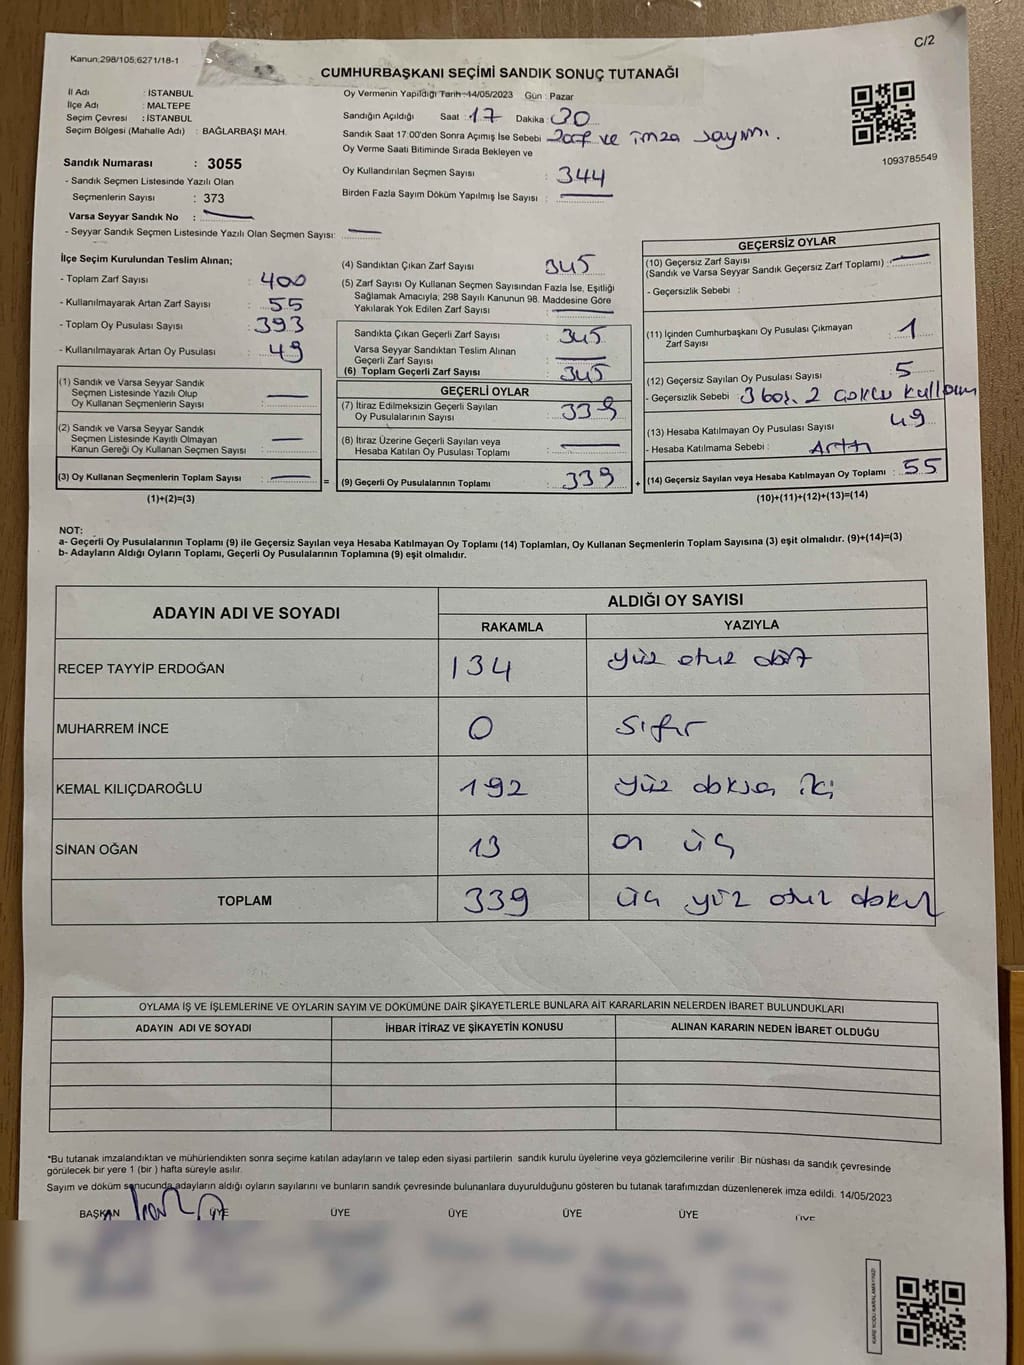 C/2
Kanun;298/105;6271/18-1
CUMHURBAŞKANI SEÇİMİ SANDIK SONUÇ TUTANAĞI
İl Adı : İSTANBUL
İlçe Adı : MALTEPE
Seçim Çevresi : İSTANBUL
Seçim Bölgesi (Mahalle Adı) : BAĞLARBAŞI MAH.
Sandık Numarası : 3055
- Sandık Seçmen Listesinde Yazılı Olan
Seçmenlerin Sayısı : 373
Varsa Seyyar Sandık No :
- Seyyar Sandık Seçmen Listesinde Yazılı Olan Seçmen Sayısı:
Oy Vermenin Yapıldığı Tarih :14/05/2023 Gün : Pazar
Sandığın Açıldığı Saat : 17 Dakika : 30
Sandık Saat 17:00'den Sonra Açımış İse Sebebi : zarf ve imza sayımı.
Oy Verme Saati Bitiminde Sırada Bekleyen ve
Oy Kullandırılan Seçmen Sayısı : 344
Birden Fazla Sayım Döküm Yapılmış İse Sayısı :
1093785549
İlçe Seçim Kurulundan Teslim Alınan;
- Toplam Zarf Sayısı : 400
- Kullanılmayarak Artan Zarf Sayısı : 55
- Toplam Oy Pusulası Sayısı : 393
- Kullanılmayarak Artan Oy Pusulası : 49
(1) Sandık ve Varsa Seyyar Sandık
Seçmen Listesinde Yazılı Olup
Oy Kullanan Seçmenlerin Sayısı :
(2) Sandık ve Varsa Seyyar Sandık
Seçmen Listesinde Kayıtlı Olmayan
Kanun Gereği Oy Kullanan Seçmen Sayısı :
(3) Oy Kullanan Seçmenlerin Toplam Sayısı :
(1)+(2)=(3)
(4) Sandıktan Çıkan Zarf Sayısı : 345
(5) Zarf Sayısı Oy Kullanan Seçmen Sayısından Fazla İse, Eşitliği
Sağlamak Amacıyla; 298 Sayılı Kanunun 98. Maddesine Göre
Yakılarak Yok Edilen Zarf Sayısı :
Sandıkta Çıkan Geçerli Zarf Sayısı : 345
Varsa Seyyar Sandıktan Teslim Alınan
Geçerli Zarf Sayısı :
(6) Toplam Geçerli Zarf Sayısı : 345
GEÇERLİ OYLAR
(7) İtiraz Edilmeksizin Geçerli Sayılan
Oy Pusulalarının Sayısı : 339
(8) İtiraz Üzerine Geçerli Sayılan veya
Hesaba Katılan Oy Pusulası Toplamı :
= (9) Geçerli Oy Pusulalarının Toplamı : 339
GEÇERSİZ OYLAR
(10) Geçersiz Zarf Sayısı
(Sandık ve Varsa Seyyar Sandık Geçersiz Zarf Toplamı) :
- Geçersizlik Sebebi :
(11) İçinden Cumhurbaşkanı Oy Pusulası Çıkmayan
Zarf Sayısı : 1
(12) Geçersiz Sayılan Oy Pusulası Sayısı : 5
- Geçersizlik Sebebi : 3 boş. 2 çoklu kullanım
(13) Hesaba Katılmayan Oy Pusulası Sayısı : 49
- Hesaba Katılmama Sebebi : Arttı
+ (14) Geçersiz Sayılan veya Hesaba Katılmayan Oy Toplamı : 55
(10)+(11)+(12)+(13)=(14)
NOT:
a- Geçerli Oy Pusulalarının Toplamı (9) ile Geçersiz Sayılan veya Hesaba Katılmayan Oy Toplamı (14) Toplamları, Oy Kullanan Seçmenlerin Toplam Sayısına (3) eşit olmalıdır. (9)+(14)=(3)
b- Adayların Aldığı Oyların Toplamı, Geçerli Oy Pusulalarının Toplamına (9) eşit olmalıdır.
ADAYIN ADI VE SOYADI ALDIĞI OY SAYISI
RAKAMLA YAZIYLA
RECEP TAYYİP ERDOĞAN 134 yüz otuz dört
MUHARREM İNCE 0 sıfır
KEMAL KILIÇDAROĞLU 192 yüz doksa iki
SİNAN OĞAN 13 on üç
TOPLAM 339 üç yüz otuz dokuz
OYLAMA İŞ VE İŞLEMLERİNE VE OYLARIN SAYIM VE DÖKÜMÜNE DAİR ŞİKAYETLERLE BUNLARA AİT KARARLARIN NELERDEN İBARET BULUNDUKLARI
ADAYIN ADI VE SOYADI İHBAR İTİRAZ VE ŞİKAYETİN KONUSU ALINAN KARARIN NEDEN İBARET OLDUĞU
*Bu tutanak imzalandıktan ve mühürlendikten sonra seçime katılan adayların ve talep eden siyasi partilerin sandık kurulu üyelerine veya gözlemcilerine verilir .Bir nüshası da sandık çevresinde
görülecek bir yere 1 (bir ) hafta süreyle asılır.
Sayım ve döküm sonucunda adayların aldığı oyların sayılarını ve bunların sandık çevresinde bulunanlara duyurulduğunu gösteren bu tutanak tarafımızdan düzenlenerek imza edildi. 14/05/2023
BAŞKAN ÜYE ÜYE ÜYE ÜYE ÜYE ÜYE
KARE KODU KARALAMAYINIZ!